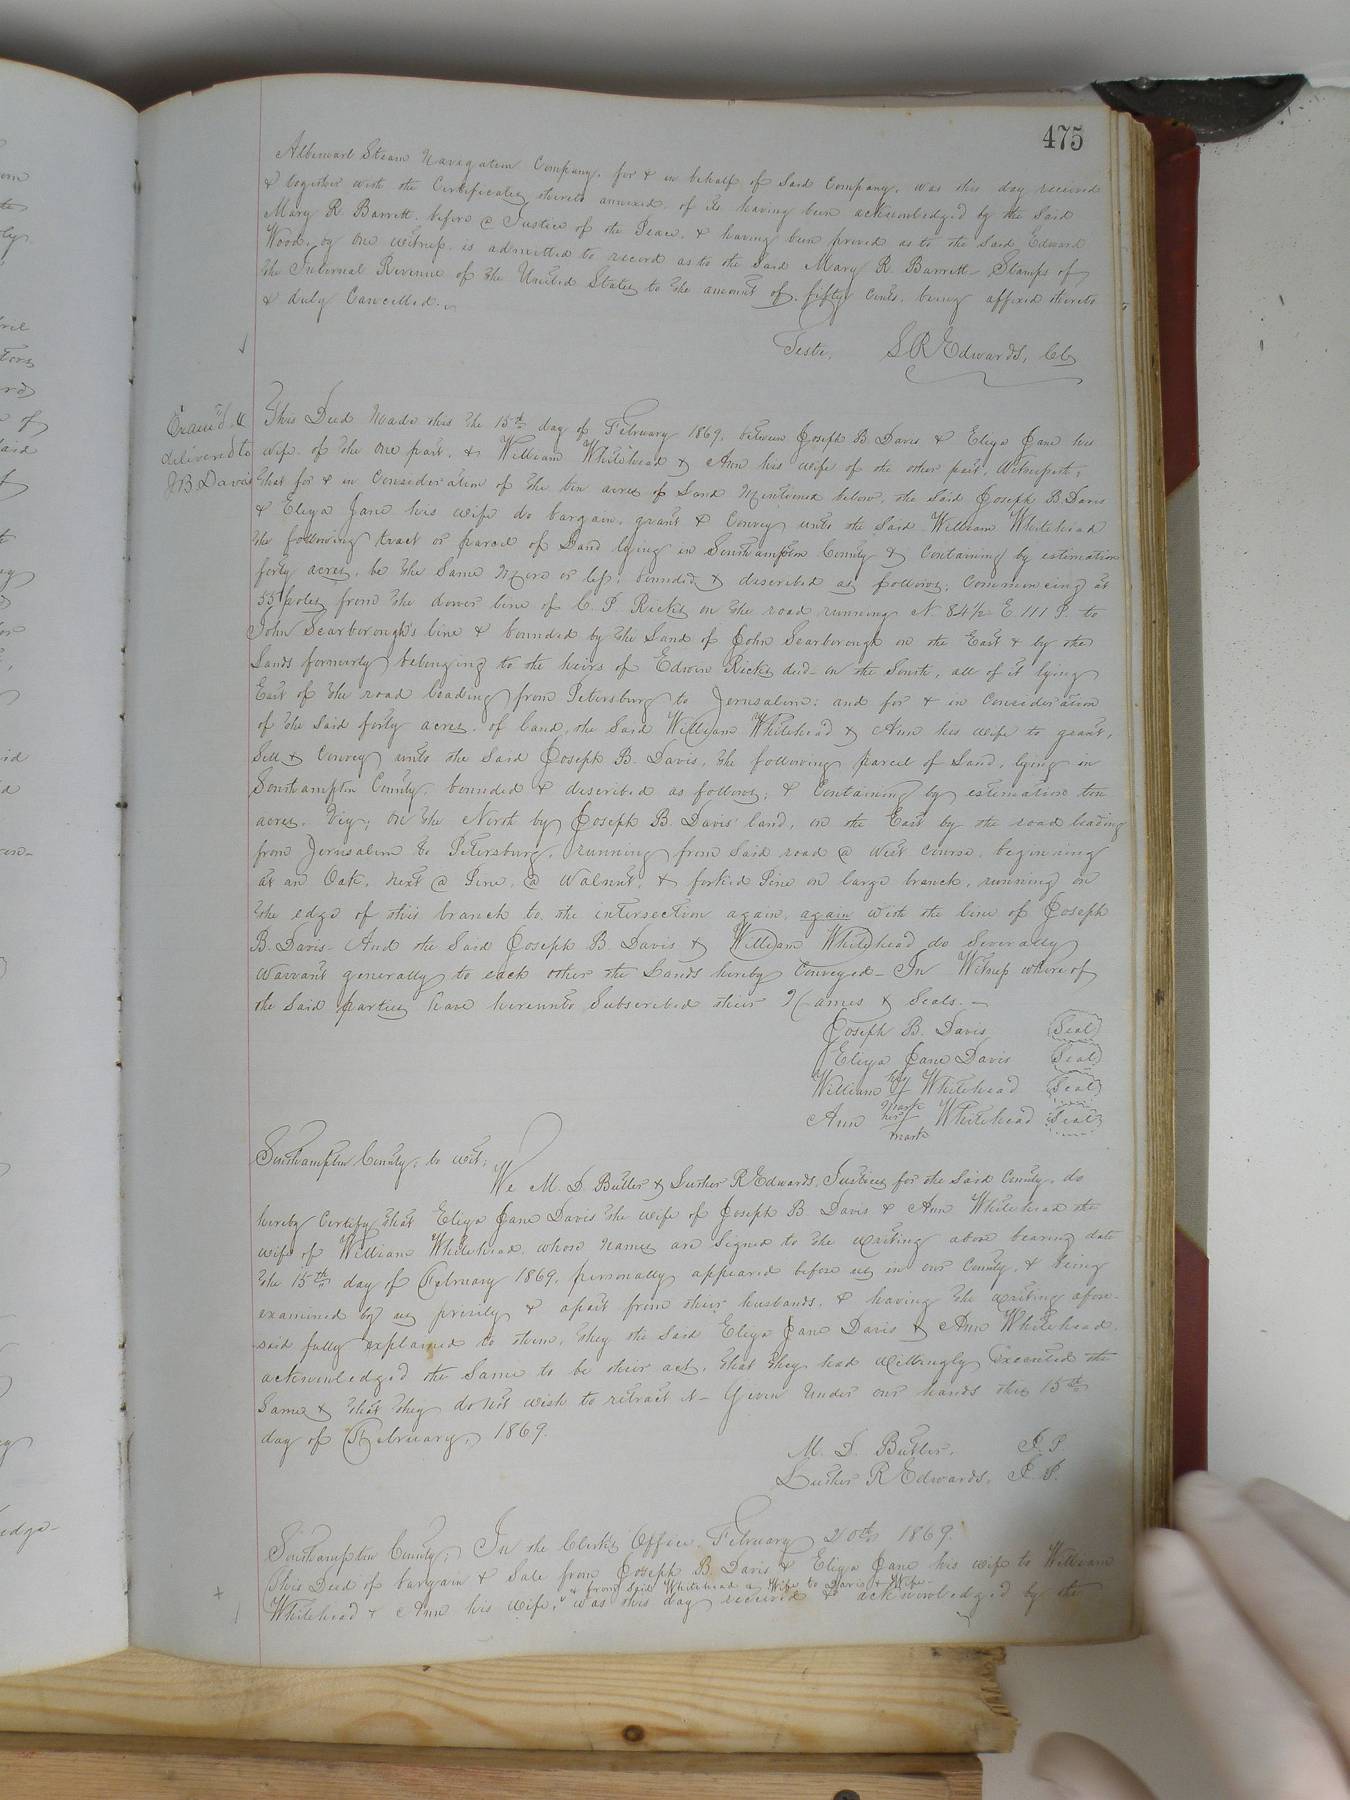 475
Albemarl Steam Navagation Company, for & in behalf of said Company, was this day received
& together with the Certificates thereto annexed, of its having been acknowledged by the said
Mary R. Barrett before @ Justice of the Peace, & having been proved as to the said Edward
Wood, by one witness is admitted to record as to the said Mary R. Barrett- Stamps of
the Internal Revenue of the United States to the amount of fifty cents, being affixed thereto
& duly Cancelled.
Teste, S R Edwards, Clk
Exam'd &
delivered to
J B Davis
This Deed Made this the 15th day of February 1869, between Joseph B Davis & Eliza Jane his
wife of the one part, & William Whitehead & Ann his wife of the other part, Witnesseth,
that for & in Consideration of the ten acres of Land Mentioned below, the said Joseph B. Davis
& Eliza Jane his wife do bargain, grant & Convey unto the said William Whitehead
the following tract or parcel of Land lying in Southampton County & Containing by estimation
forty acres, be the same more or less, bounded & described as follows; Commencing at
55 poles from the dower line of C. P. Ricks on the road running N. 84½ E 111 P. to
John Scarborough's line & bounded by the Land of John Scarborough on the East & by the
Lands formerly belonging to the heirs of Edwin Ricks decd- on the South, all of it lying
East of the road leading from Petersburg to Jerusalem; and for & in Consideration
of the said forty acres of land, the said William Whitehead & Ann his wife to grant,
Sell & Convey unto the said Joseph B. Davis, the following parcel of Land, lying in
Southampton County, bounded & described as follows; & Containing by estimation ten
acres. Viz; on the North by Joseph B. Davis' land, on the East by the road leading
from Jerusalem to Petersburg, running from said road @ West Course, beginning
at an Oak, next @ Pine, @ Walnut, & forked Pine on large branch, running on
the edge of this branch to the intersection again, again with the line of Joseph
B. Davis- And the said Joseph B Davis & William Whitehead do severally
Warrant generally to each other the Lands hereby Conveyed- In Witness whereof
the said parties have hereunto Subscribed their Names & Seals.-
Joseph B. Davis Seal
Eliza Jane Davis Seal
William his mark Whitehead Seal
Ann her mark Whitehead Seal
Southampton County, to wit;
We M. D. Butler & Luther R Edwards, Justices for the said County, do
hereby Certify that Eliza Jane Davis the wife of Joseph B Davis & Ann Whitehead the
wife of William Whitehead, whose names are signed to the writing above bearing date
the 15th day of February 1869, personally appeared before us in our County, & being
examined by us privily & apart from their husbands, & having the writing afore-
said fully explained to them, they the said Eliza Jane Davis & Ann Whitehead,
acknowledged the same to be their act, that they had willingly Executed the
Same & that they do not wish to retract it- Given under our hands this 15th
day of February, 1869.
M. D. Butler, J. P.
Luther R Edwards, J. P.
Southampton County; In the Clerks Office February 20th 1869.
This Deed of bargain & Sale from Joseph B. Davis & Eliza Jane his wife to William
& from said Whitehead & Wife to Davis & Wife-
Whitehead & Ann his wife, was this day received & acknowledged by the